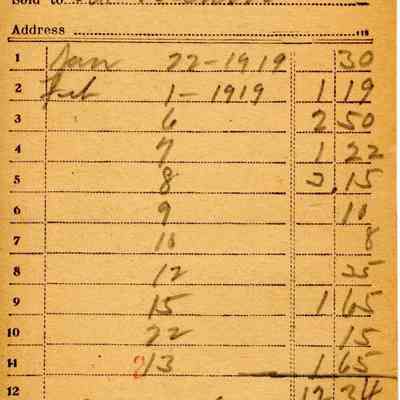 Sold to
Address 118
1 Jan 22-1919 30
2 Feb 1-1919 1 19
3 6 2 50
4 7 1 22
5 8 3,15
6 9 10
7 10 8
8 12 35
9 15 1 65
10 22 15
11 13 1 65
12 12 34